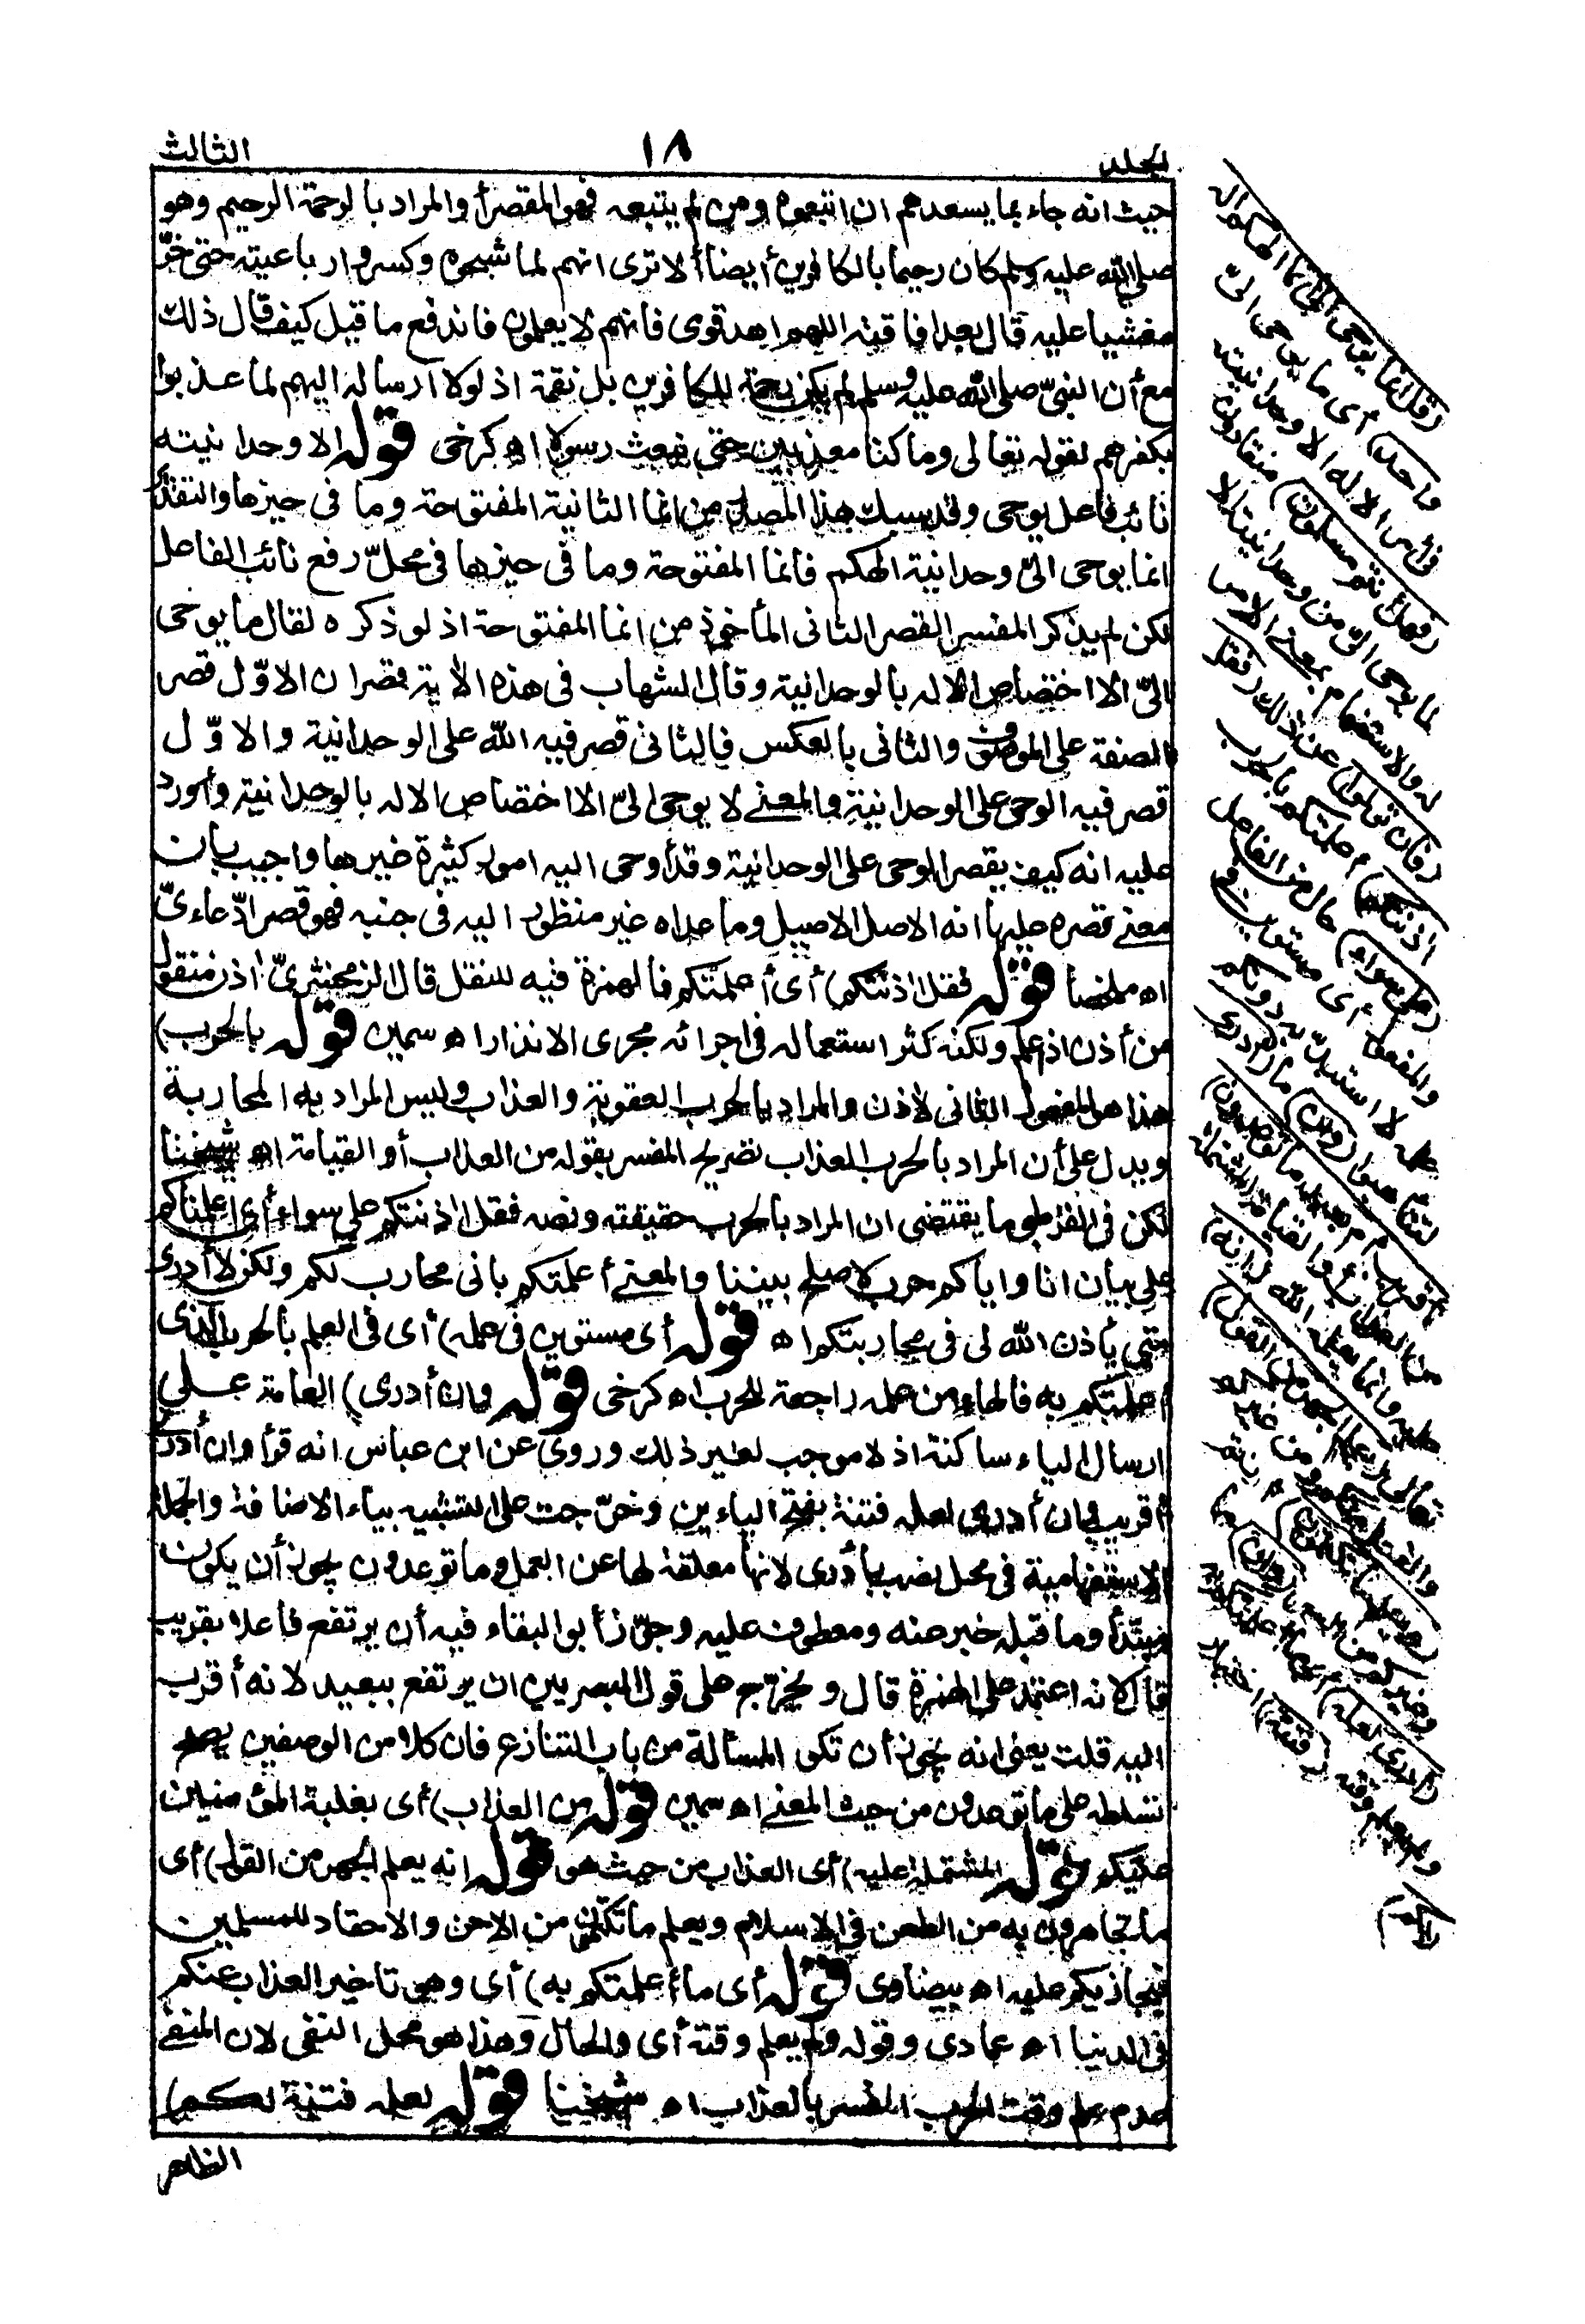 المجلد
١٨
الثالث
حيث انه جاء بما يسعدهم ان اتبعوه ومن لم يتبعه فهو المقصر أو المراد بالرحمة الرحيم وهو
صلى الله عليه وسلم كان رحيما بالكافرين أيضا ألا ترى انهم لما شجوه وكسروا رباعيته حتى خرّ
مغشيا عليه قال بعد افاقته اللهم اهد قومى فانهم لا يعلمون فاندفع ما قيل كيف قال ذلك
مع أن النبىّ صلى الله عليه وسلم لم يكن رحمة للكافرين بل نقمة اذ لولا ارساله اليهم لما عذبوا
بكفرهم لقوله تعالى وما كنا معذبين حتى نبعث رسولا اه كرخى قوله الا وحدانيته
نائب فاعل يوحى وقد يسبك هذا المصدر من انما الثانية المفتوحة وما فى حيزها والتقدير
انما يوحى الىّ وحدانية الهكم فانما المفتوحة وما فى حيزها فى محلّ رفع نائب الفاعل
لكن لم يذكر المفسر القصر الثانى المأخوذ من انما المفتوحة اذ لو ذكره لقال ما يوحى
الىّ الا اختصاص الاله بالوحدانية وقال الشهاب فى هذه الآية قصران الاوّل قصر
الصفة على الموصوف والثانى بالعكس فالثانى قصر فيه الله على الوحدانية والاوّل
قصر فيه الوحى على الوحدانية والمعنے لا يوحى الىّ الا اختصاص الاله بالوحدانية وأورد
عليه انه كيف يقصر الوحى على الوحدانية وقد أوحى اليه امور كثيرة غيرها واجيب بان
معنے قصره عليها انه الاصل الاصيل وما عداه غير منظور اليه فى جنبه فهو قصر ادّعاءىّ
اه ملخصا قوله فقل آذنتكم) أى أعلمتكم فالهمزة فيه للنقل قال الزمخشرىّ آذن منقول
من أذن اذا علم ولكنه كثر استعماله فى اجرائه مجرى الانذار اه سمين قوله بالحرب)
هذا هو المفعول الثانى لآذن والمراد بالحرب العقوبة والعذاب وليس المراد به المحاربة
ويدل على أن المراد بالحرب العذاب تصريح المفسر بقوله من العذاب أو القيامة اه شيخنا
لكن فى القرطبى ما يقتضى ان المراد بالحرب حقيقته ونصه فقل آذنتكم على سواء أى أعلمناكم
على بيان انا واياكم حرب لا صلح بيننا والمعنے أعلمتكم بانى محارب لكم ولكن لا أدرى
متى يأذن الله لى فى محاربتكم اه قوله أى مستوين فى علمه) أى فى العلم بالحرب الذى
أعلمتكم به فالهاء من علمه راجعة للحرب اه كرخى قوله وان أدرى) العامة على
ارسال الياء ساكنة اذ لا موجب لغير ذلك وروى عن ابن عباس انه قرأ وان أدرىَ
أقريب وان أدرى لعله فتنة بفتح الياءين وخرّجت على التشبيه بياء الاضافة والجملة
الاستفهامية فى محل نصب بأدرى لانها معلقة لها عن العمل وما توعدون يجوز أن يكون
مبتدأ وما قبله خبر عنه ومعطوف عليه وجوّز أبو البقاء فيه أن يرتفع فاعلا بقريب
قال لانه اعتمد على الهمزة قال ويخرّج على قول البصريين ان يرتفع ببعيد لانه أقرب
اليه قلت يعنى انه يجوز أن تكون المسألة من باب التنازع فان كلا من الوصفين يصح
تسلطه على ما توعدون من حيث المعنے اه سمين قوله من العذاب) أى بغلبة المؤمنين
عليكم قوله المشتملة عليه) أى العذاب من حيث هو قوله انه يعلم الجهر من القول) أى
ما تجاهرون به من الطعن فى الاسلام ويعلم ما تكتمون من الاحن والاحقاد للمسلمين
فيجازيكم عليه اه بيضاوى قوله أى ما أعلمتكم به) أى وهو تاخير العذاب عنكم
فى الدنيا اه عمادى وقوله ولم يعلم وقته أى والحال وهذا هو محل النفى لان المنفى
عدم علم وقت الحرب المفسر بالعذاب اه شيخنا قوله لعله فتنة لكم)
الظاهر
(قل انما يوحى الىّ انما الهكم اله
واحد) أى ما يوحى الىّ
فى أمر الاله الا وحدانيته
(فهل أنتم مسلمون) منقادون
لما يوحى الىّ من وحدانية الاله
والاستفهام بمعنى الامر
(فان تولوا) عن ذلك (فقل
آذنتكم) أعلمتكم بالحرب
(على سواء) حال من الفاعل
والمفعول أى مستوين فى
علمه لا استبدّ به دونكم
لتتأهبوا (وان) ما (أدرى
أقريب أم بعيد ما توعدون)
من العذاب أو القيامة المشتملة
عليه وانما يعلمه الله (انه)
تعالى (يعلم الجهر من القول)
والفعل منكم ومن غيركم
(ويعلم ما تكتمون) أنتم
وغيركم من السر (وان) ما
(أدرى لعله) أى ما أعلمتكم به
ولم يعلم وقته (فتنة) اختبار
(لكم)